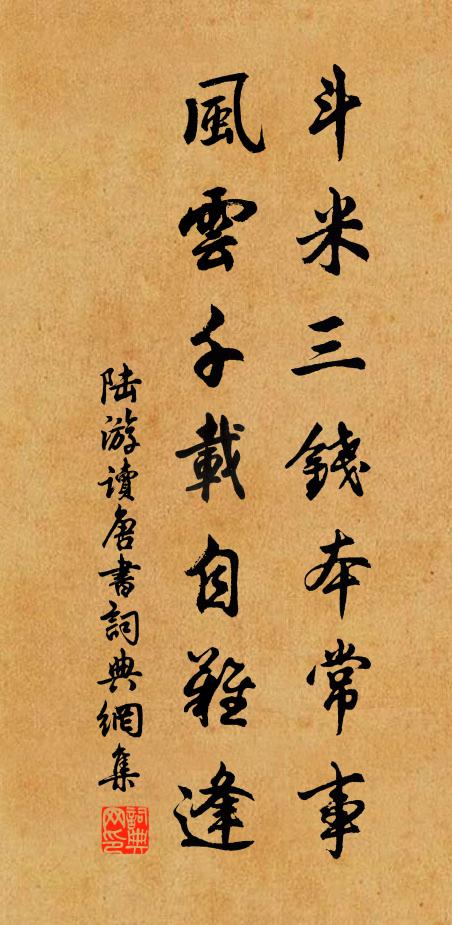 斗米三錢本常事
風雲千載自難逢
陆游讀唐書詞典網集
詞典网印